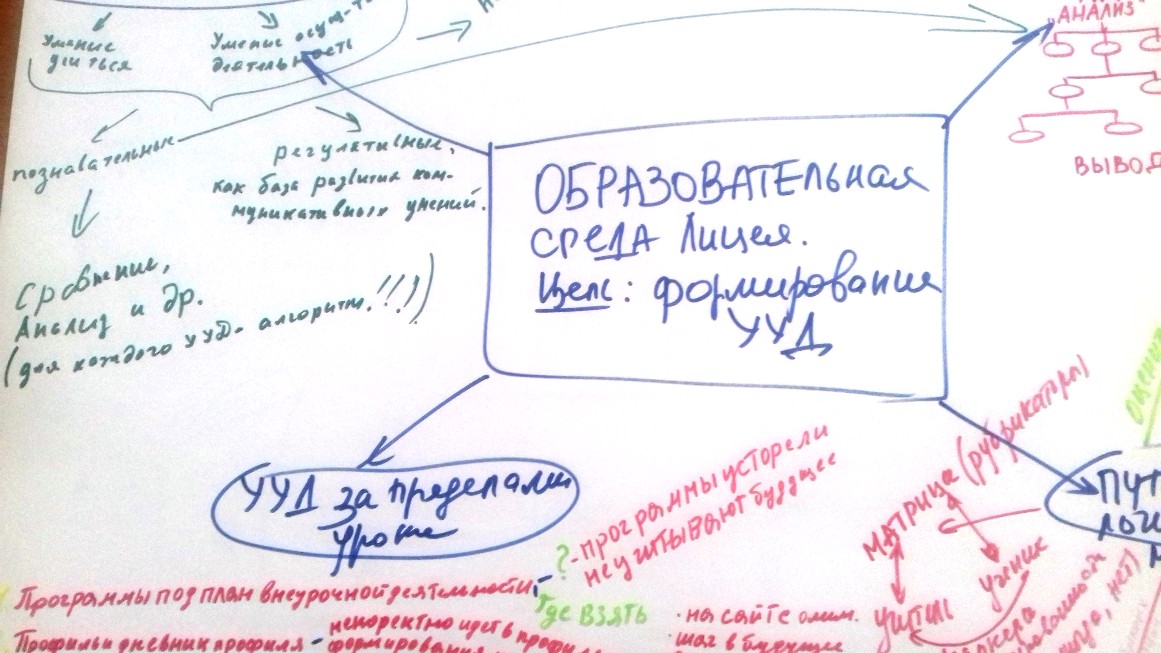 Умение
учиться
Умение осущ-ть
деятельность
познавательные
регулятивные,
как база развития ком-
муникативных умений.
Сравнение,
Анализ и др.
(для каждого УУД- алгоритм!!!)
АНАЛИЗ
ВЫВОД
ОБРАЗОВАТЕЛЬНАЯ
СРЕДА Лицея.
Цель: формирования
УУД
УУД за пределами
урока
?-программы усторели
не учитывают будущее
Программы под план внеурочной деятельности,
где взять
Профильы дневник профиля -
некоректно идет в профи
формирования
· на сайте олим.
· шаг в будущее
МАТРИЦА (рубрикатры)
учитель
ученик
ПУТ